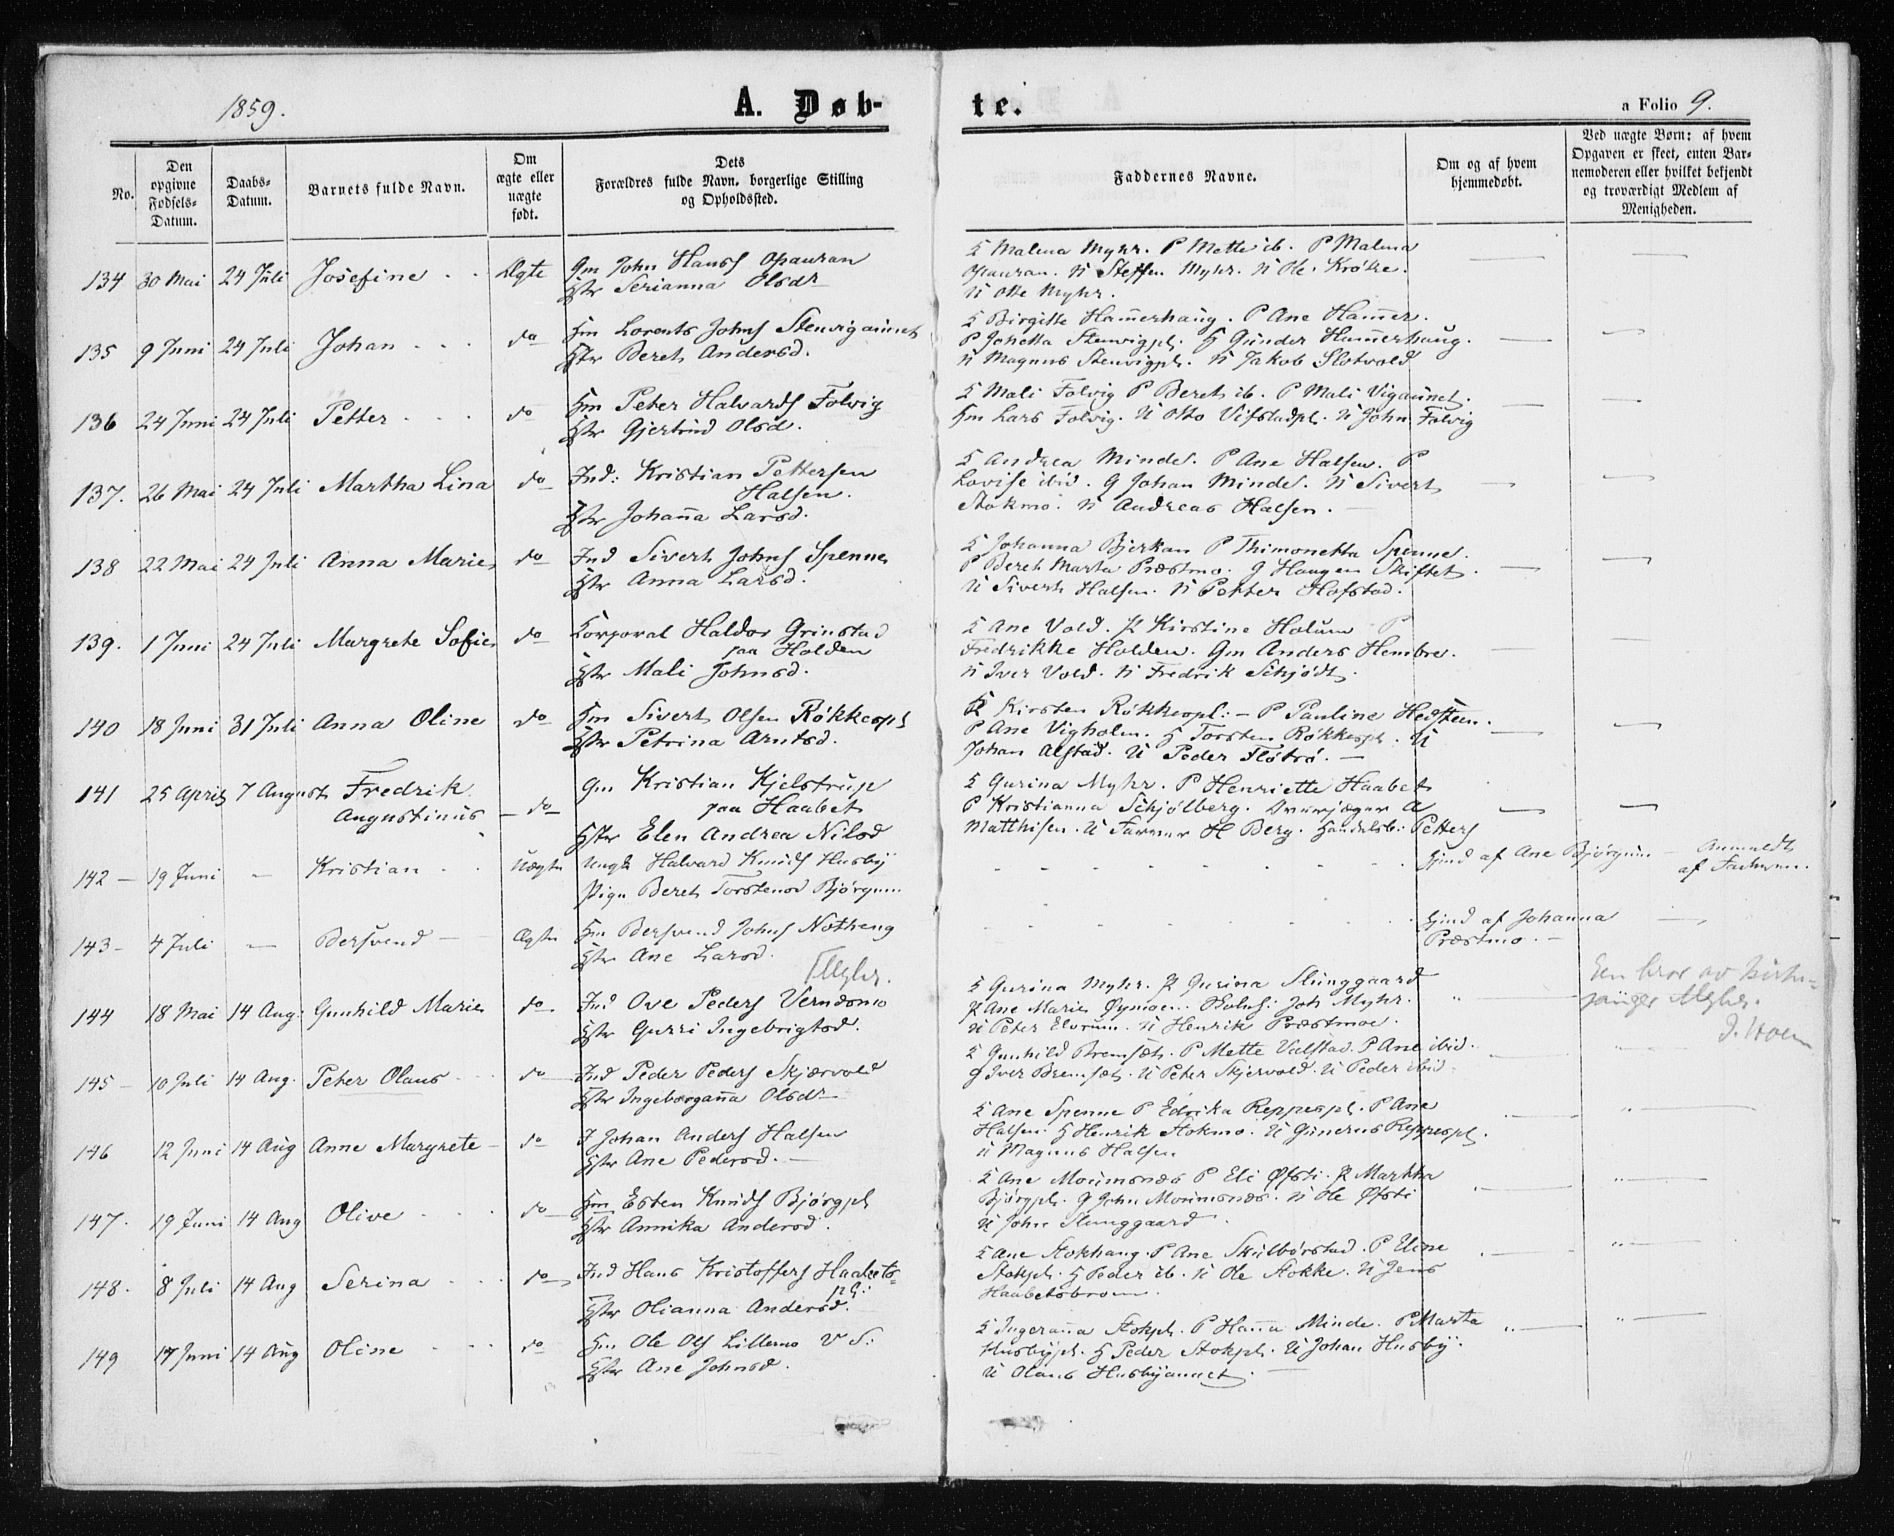 1859.
A. Døb-
te.
a Folio 9.
No.
Den
opgivne
Fødsels-
Datum.
Daabs-
Datum.
Barnets fulde Navn.
Om
ægte eller
uægte
født.
Dets
Forældres fulde Navn, borgerlige Stilling
og Opholdssted.
Faddernes Navne.
Om og af hvem
hjemmedøbt.
Ved uægte Børn: af hvem
Opgaven er skeet, enten Bar-
nemoderen eller hvilket bekjendt
og troværdigt Medlem af
Menigheden.
134 30 Mai 24 Juli Josefine Ægte Gm John Hans Opauran
Hstr Serianna Olsdr
K Malena Myhr. P Mette ib. P Malena
Opauran. U Steffen Myhr. U Ole Krøke.
U Otte Myhr.
135 9 Juni 24 Juli Johan do Hm Lorents Johns Stenvigaunet
Hstr Beret Andersd.
K Birgitte Hamerhaug. P Ane Hamer.
P Johetta Stenvigpl. G Gunder Hamerhaug.
U Magnus Stenvigpl. U Jakob Slotvold
136 24 Juni 24 Juli Petter do Hm Peter Halvards Folvig
Hstr Gjertrud Olsd.
K Mali Folvig P Beret ib. P Mali Vigaunet.
Hm Lars Folvig. U Otto Vifstadpl. U John Folvig
137. 26 Mai 24 Juli Martha Lina do Ind: Kristian Pettersen
Halsen.
Hstr Johana Larsd.
K Andrea Minde. P Ane Halsen. P
Lovise ibid. G Johan Minde. U Sivert
Stokmo. U Andreas Halsen.
138 22 Mai 24 Juli Anna Marie do Ind Sivert Johns Spenne
Hstr Anna Larsd.
K Johanna Bjerkan P Thimonetta Spenne.
P Beret Marta Præstmo. G Haagen Skiftet.
U Sivert Halsen. U Petter Hofstad.
139. 1 Juni 24 Juli Margrete Sofie do Korporal Haldor Grinstad
paa Holden
Hstr Mali Johnsd.
K Ane Vold. P Kirstine Holum P
Fredrikke Holden. Gm Anders Hembre.
U Iver Vold. U Fredrik Schjødt.
140 18 Juni 31 Juli Anna Oline do Hm Sivert Olsen Røkkespl
Hstr Petrina Arntsd.
K Kirsten Røkkespl: – P Pauline Hedsteen.
P Ane Vigholm. G Torsten Røkkespl. U
Johan Alstad. U Peder Fløtrø. –
141 25 April 7 August Fredrik
Augustinus do Gm Kristian Kjelstrup
paa Haabet
Hstr Elen Andrea Nilsd
K Gurina Myhr. P Henriette Haabet
P Kristianna Schjølberg. A
Matthisen. U H Berg. Petters
142 – 19 Juni – Kristian Uægte Ungk Halvard Knuds Husby
Pige Beret Torstensd Bjørgum
hjmd af Ane Bjørgum – Anmeldt
af
143 – 4 Juli – Bersvend Ægte Hm Bersvend Johns Notheng
Hstr Ane Larsd.
hjmd af Johanna
Præstmo. –
144 18 Mai 14 Aug: Gunhild Marie do Ind Ove Peders Verndsmo
Hstr Gurri Ingebrigtsd.
K Gurina Myhr. P Gurina Slunggaard
P Ane Marie Øymoen. Joh Myhr.
U Peter Elvrum. U Henrik Præstmoe.
145 – 10 Juli 14 Aug. Peter Olaus do Ind Peder Peders Skjærvold
Hstr Ingeborgana Olsdr
K Gunhild Bremsæt. P Mette Valstad. P Ane ibid.
G Iver Bremsæt. U Peter Skjervold. U Peder ibid.
146 12 Juni 14 Aug Anne Margrete do I Johan Anders Halsen
Hstr Ane Pedersd. –
K Ane Spenne P Edrika Reppespl. P Ane
Halsen. G Henrik Stokmo. U Gunerus Reppespl.
U Magnus Halsen
147. 19 Juni 14 Aug Olive do Hm Esten Knuds Bjørgpl
Hstr Annika Andersd.
K Ane Moumsnæs P Eli Øfsti. P Martha
Bjørgpl. G John Moumsnæs. U Ole Øfsti
U John Slunggaard.
148. 8 Juli 14 Aug Serina do Ind Hans Kristoffers Haabets-
pl:
Hstr Olianna Andersd.
K Ane Stokhaug. P Ane Skulbørstad. P Eline
Stokpl. G Peder ib. U Ole Stokke. U Jens
149 17 Juni 14 Aug Oline do Hm Ole Ols Lillemo V S:
Hstr Ane Johnsd.
K Ingerana Stokpl. P Hana Minde. P Marta
Husbypl. G Peder Stokpl. U Johan Husby.
U Olaus Husbyaunet.